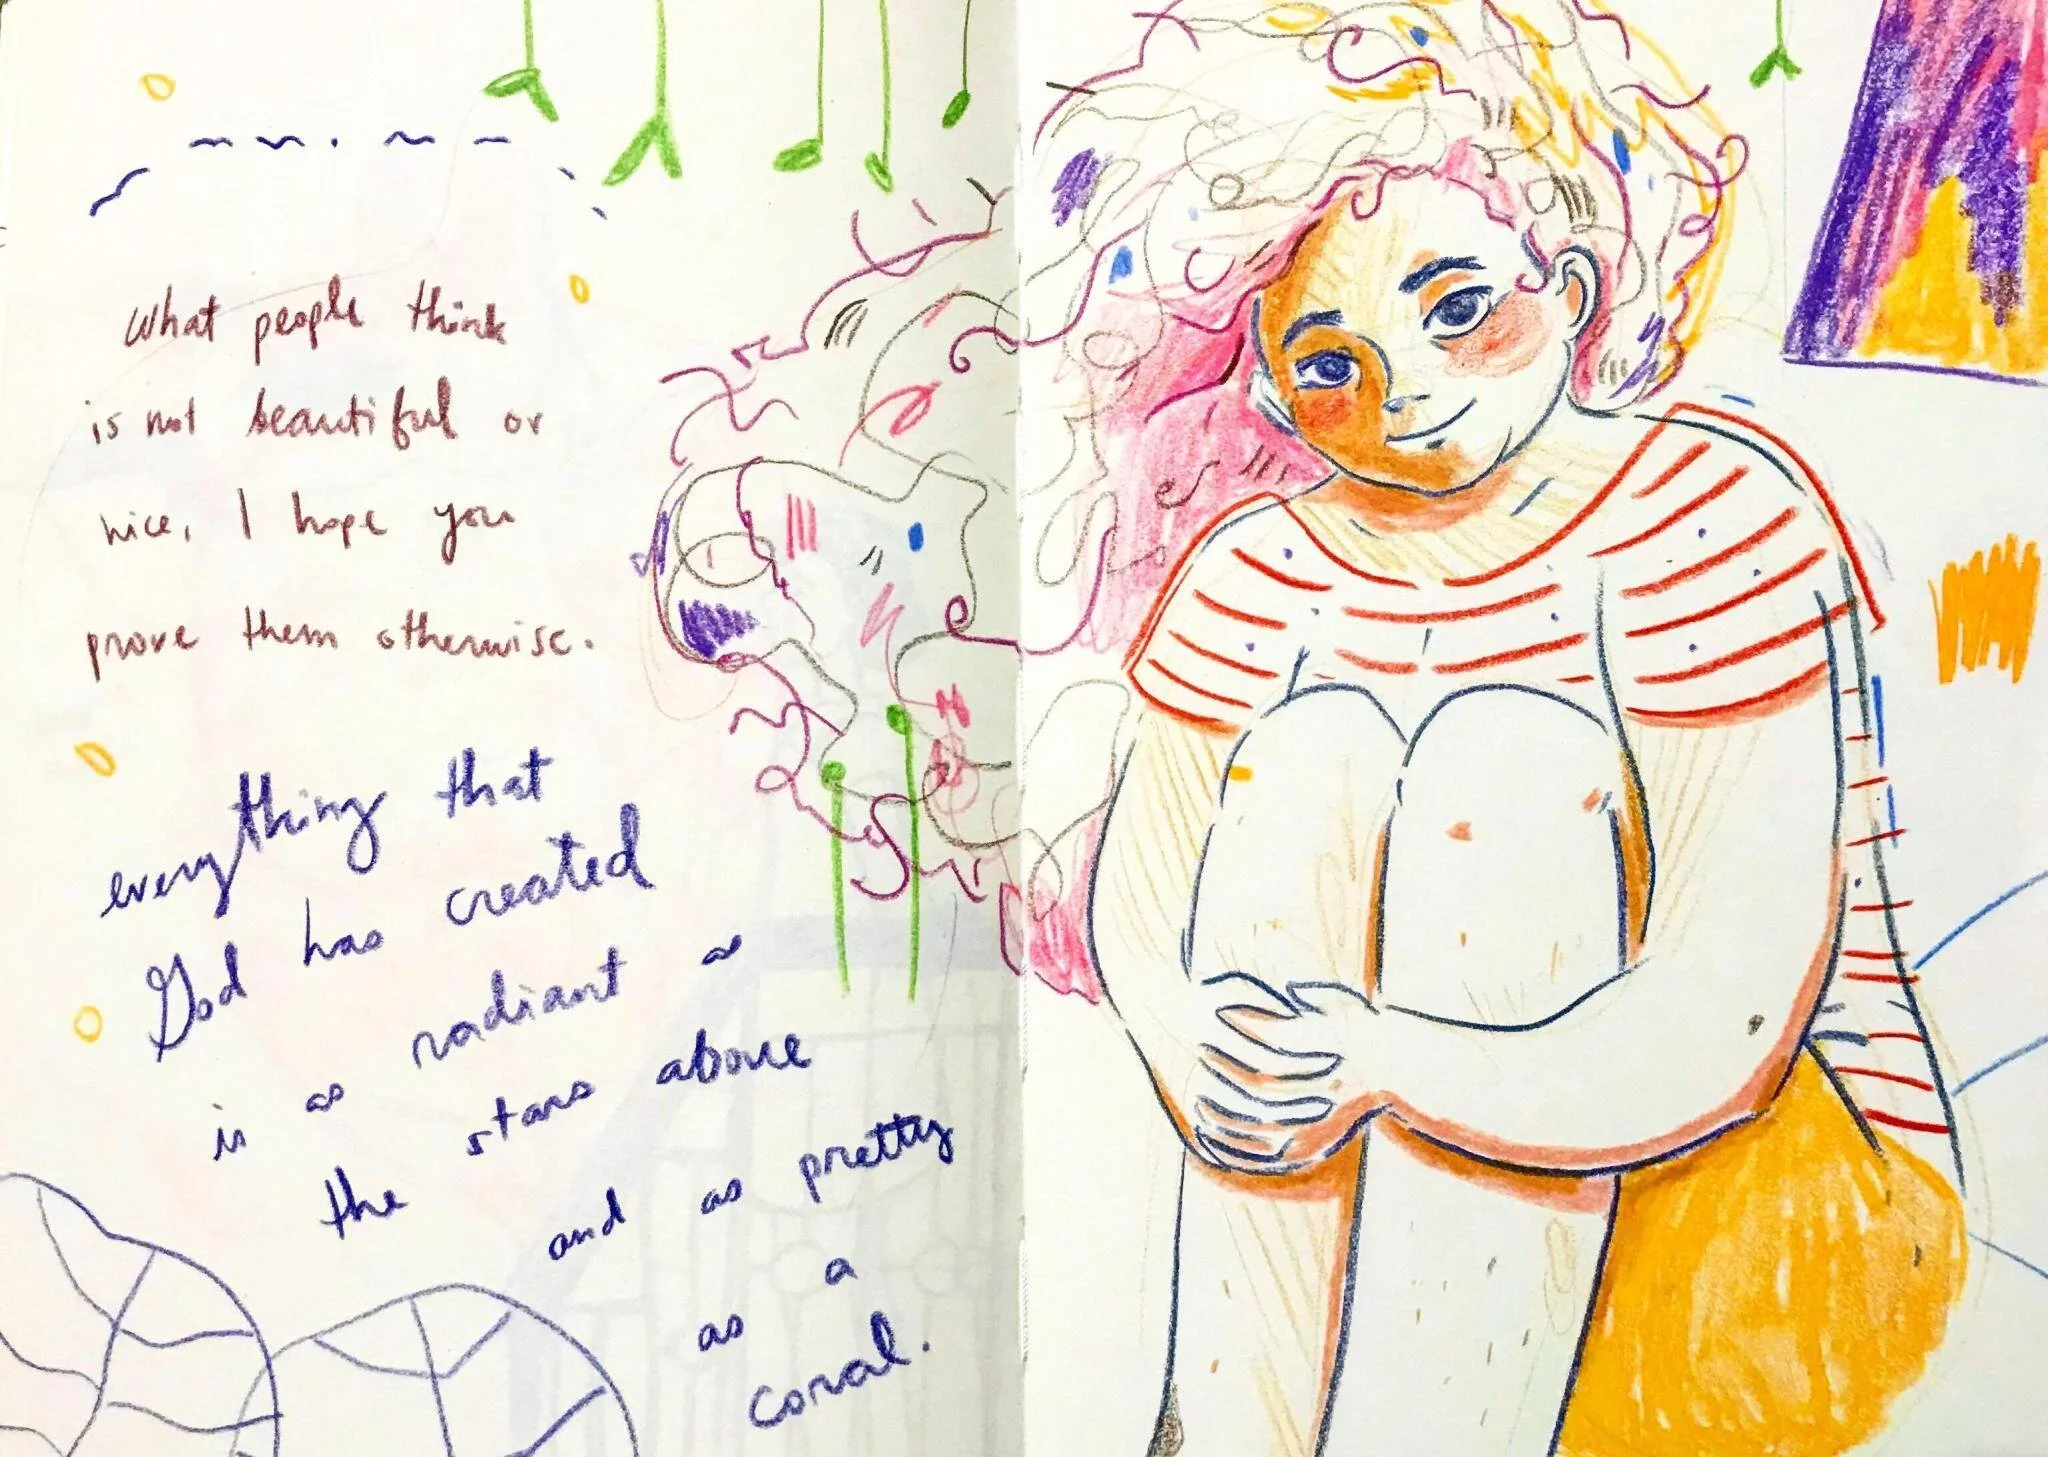 What people think
is not beautiful or
nice, I hope you
prove them otherwise.
everything that
God has created
is as radiant as
the stars above
and as pretty
as a
coral.